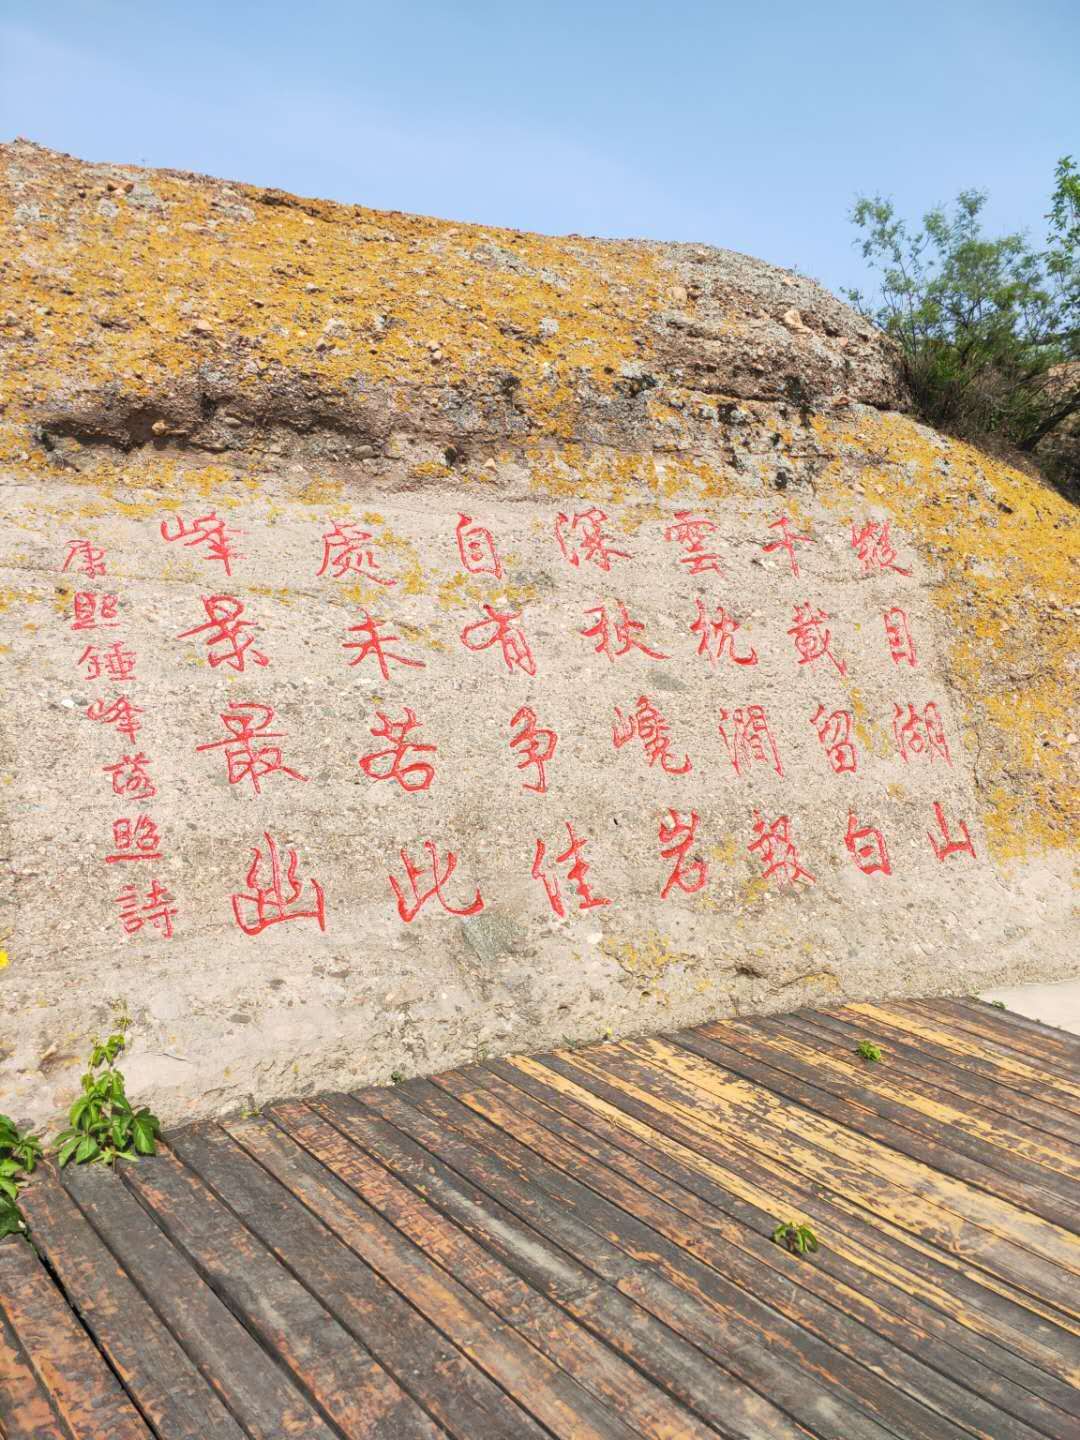 縱目湖山
千載留白
雲枕澗報
深秋巉岩
自有爭佳
處未若此
峰景最幽
康熙錘峰落照詩